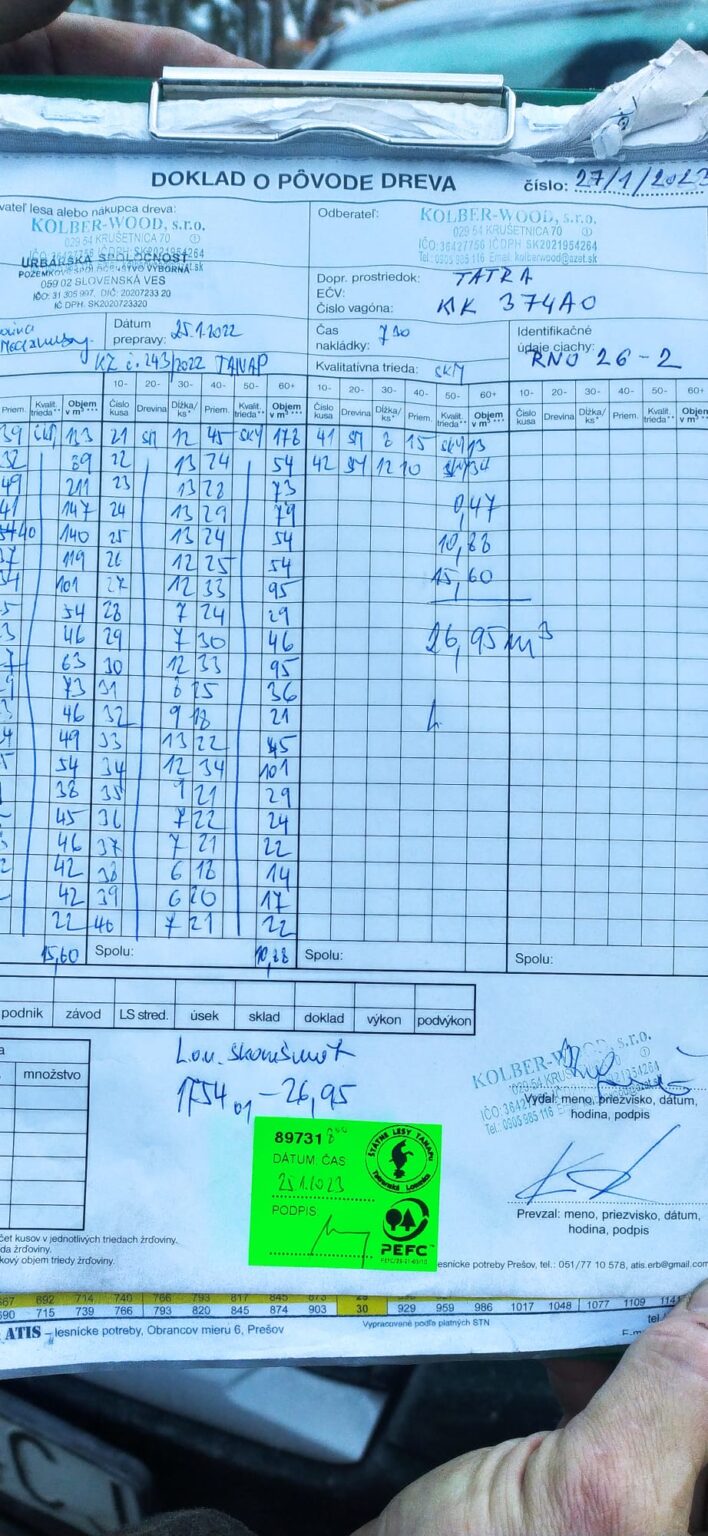 DOKLAD O PÔVODE DREVA číslo: 27/1/2023
vateľ lesa alebo nákupca dreva:
KOLBER-WOOD, s.r.o.
029 54 KRUŠETNICA 70
URBÁLSKA SPOLOČNOSŤ
059 02 SLOVENSKÁ VES
IČO: 31 305 997, DIČ: 2020723320
IČ DPH: SK2020723320
Odberateľ:
KOLBER-WOOD, s.r.o.
029 54 KRUŠETNICA 70
IČO: 36427756 IČDPH SK2021954264
Tel.: 0905 985 116 Email: kolberwood@azet.sk
Dopr. prostriedok: TATRA
EČV:
Číslo vagóna: KK 374AO
Dátum prepravy: 25.1.2022
Čas nakládky: 730
Identifikačné údaje ciachy: RNO 26-2
KZ č. 243/2022 TANAP
Kvalitatívna trieda: SKM
10- 20- 30- 40- 50- 60+ 10- 20- 30- 40- 50- 60+ 10- 20- 30- 40- 50- 60+
Priem. Kvalit. trieda** Objem v m³ *** Číslo kusa Drevina Dĺžka/ks* Priem. Kvalit. trieda** Objem v m³ *** Číslo kusa Drevina Dĺžka/ks* Priem. Kvalit. trieda** Objem v m³ *** Číslo kusa Drevina Dĺžka/ks* Priem. Kvalit. trieda** Objem v m³ ***
39 133 21 SM 12 45 SKM 178 41 SM 8 15 SKM 13
32 89 22 13 24 54 42 SM 12 10 34
49 211 23 13 28 73
41 147 24 13 29 79 0,47
40 140 25 13 24 54 10,88
37 119 26 12 25 54
34 101 27 12 33 95 15,60
54 28 7 24 29
46 29 7 30 46 26,95m³
63 30 12 33 95
73 31 8 25 36
46 32 9 18 21
49 33 13 22 45
54 34 12 34 101
38 35 9 21 29
45 36 7 22 24
46 37 7 21 22
42 38 6 18 14
42 39 6 20 17
22 40 7 21 22
15,60 Spolu: 10,88 Spolu: Spolu:
podnik závod LS stred. úsek sklad doklad výkon podvýkon
množstvo
1754,01 – 26,95
KOLBER-WOOD, s.r.o.
029 54 KRUŠETNICA 70
Tel.: 0905 985 116
Vydal: meno, priezvisko, dátum,
hodina, podpis
89731
DÁTUM: ČAS
25.1.2023
PODPIS
ŠTÁTNE LESY TANAPU
Tatranská Lomnica
PEFC
Prevzal: meno, priezvisko, dátum,
hodina, podpis
čet kusov v jednotlivých triedach žrďoviny.
da žrďoviny.
kový objem triedy žrďoviny.
esnícke potreby Prešov, tel.: 051/77 10 578, atis.erb@gmail.com
667 692 714 740 766 793 817 845 873
690 715 739 766 793 820 845 874 903 30 929 959 986 1017 1048 1077 1109 1141
ATIS – lesnícke potreby, Obrancov mieru 6, Prešov
Vypracované podľa platných STN